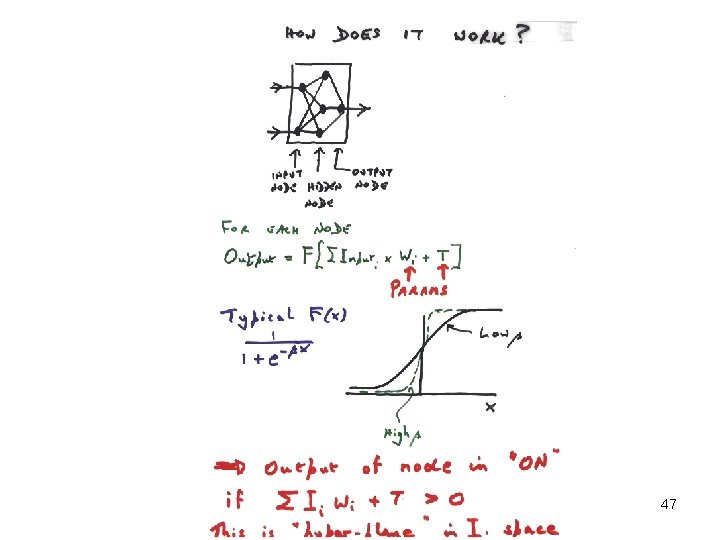 HOW DOES IT WORK?
INPUT NODE
HIDDEN NODE
OUTPUT NODE
FOR EACH NODE
Output = F[Σ Input_i × W_i + T]
PARAMS
Typical F(x)
1
1 + e^-βx
Low β
x
High β
⇒ Output of node in "ON"
if Σ I_i W_i + T > 0
This is "hyper-plane" in I. space
47